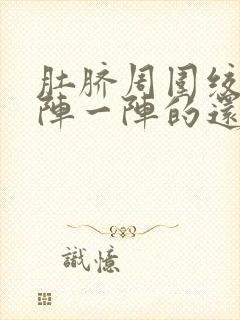 肚脐周围绞
陣一陣的還
識憶